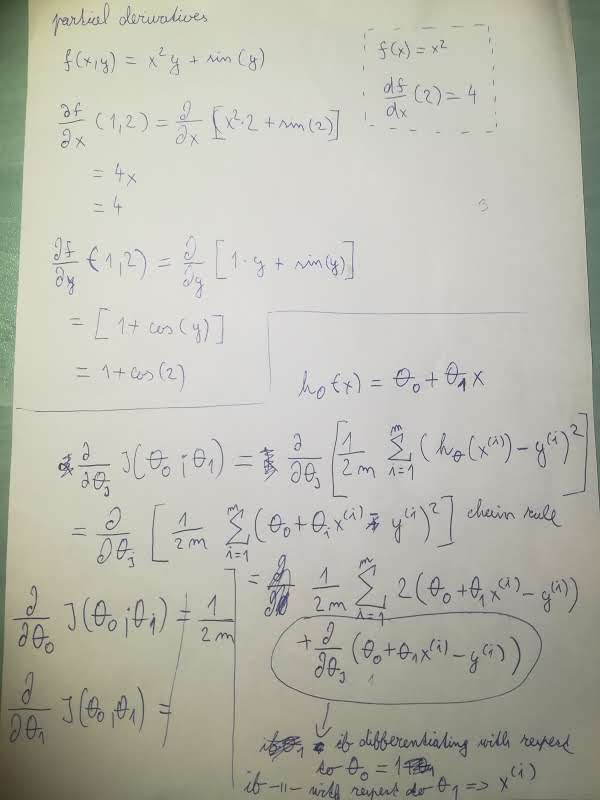 partiel derivatives
f(x,y) = x²y + sin(y)
f(x) = x²
df/dx (2) = 4
∂f/∂x (1,2) = ∂/∂x [x²·2 + sin(2)]
= 4x
= 4
∂f/∂y (1,2) = ∂/∂y [1·y + sin(y)]
= [1 + cos(y)]
= 1 + cos(2)
h_θ(x) = θ₀ + θ₁x
∂/∂θ_j J(θ₀; θ₁) = ∂/∂θ_j [1/2m Σ_{i=1}^{m} (h_θ(x^(i)) − y^(i))²]
= ∂/∂θ_j [1/2m Σ_{i=1}^{m} (θ₀ + θ₁x^(i) − y^(i))²] chain rule
= 1/2m Σ_{i=1}^{m} 2(θ₀ + θ₁x^(i) − y^(i))
+ ∂/∂θ_j (θ₀ + θ₁x^(i) − y^(i))
if differentiating with respect
to θ₀ = 1
if -11- with respect to θ₁ => x^(i)
∂/∂θ₀ J(θ₀; θ₁) = 1/2m
∂/∂θ₁ J(θ₀, θ₁) =